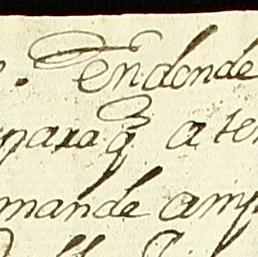 En donde
para q̃ a te
mande amp